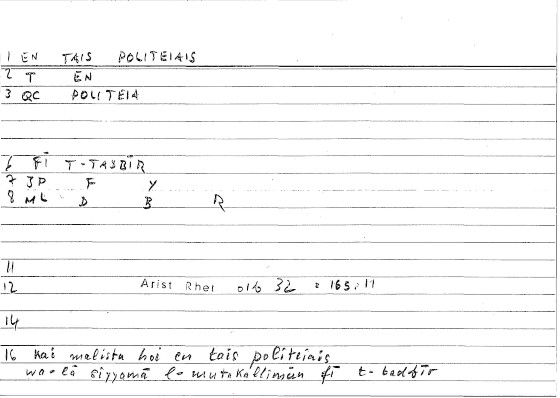 1 EN TAIS POLITEIAIS
2 T EN
3 QC POLITEIA
6 FĪ T-TASBĪR
7 JP F Y
8 ML D B R
11
12 Arist Rhet 01b 32 = 165:11
14
16 kai malista hoi en tais politeiais
wa-lā siyyamā l-mutakallimūn fī t-tadbīr